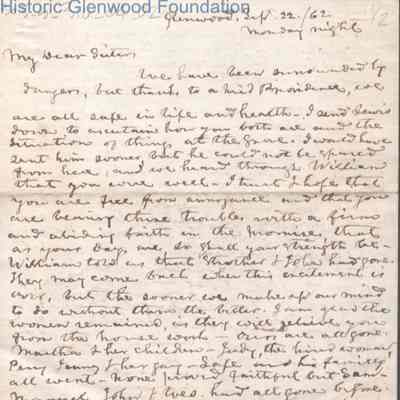 Historic Glenwood Foundation
Glenwood, Sept. 22/62
Monday night
My Dear Sister,
We have been surrounded by
dangers, but thanks to a kind Providence, we
are all safe in life and health. I send Lewis
down to ascertain how you both are and the
situation of things at the Grove. I would have
sent him sooner but he could not be spared
from here, and we heard through William
that you were well. I trust & hope that
you are free from annoyance and that you
are bearing these troubles with a firm
and abiding faith in the Promise, that
as your Day, so shall your strength be.
William told us that & John had gone.
They may come back when this excitement is
over, but the sooner we make up our mind
to do without them the better. I am glad the
women remained, as they will relieve you
from the house work. Ours are all gone.
Martha & her children - Judy, the hired woman
Perry, Fanny & her gang - and his family
all went. None proved faithful but Sam.
John & Wes. had all gone before.